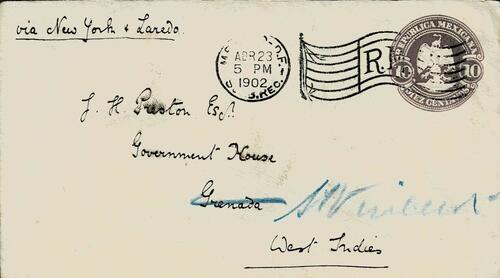 via New York & Laredo.
ABR 23
5 PM
1902
REC.
R.
REPUBLICA MEXICANA
10 10
DIEZ CENTAVOS
J. H. Preston Esqr.
Government House
Grenada St Vincent
West Indies